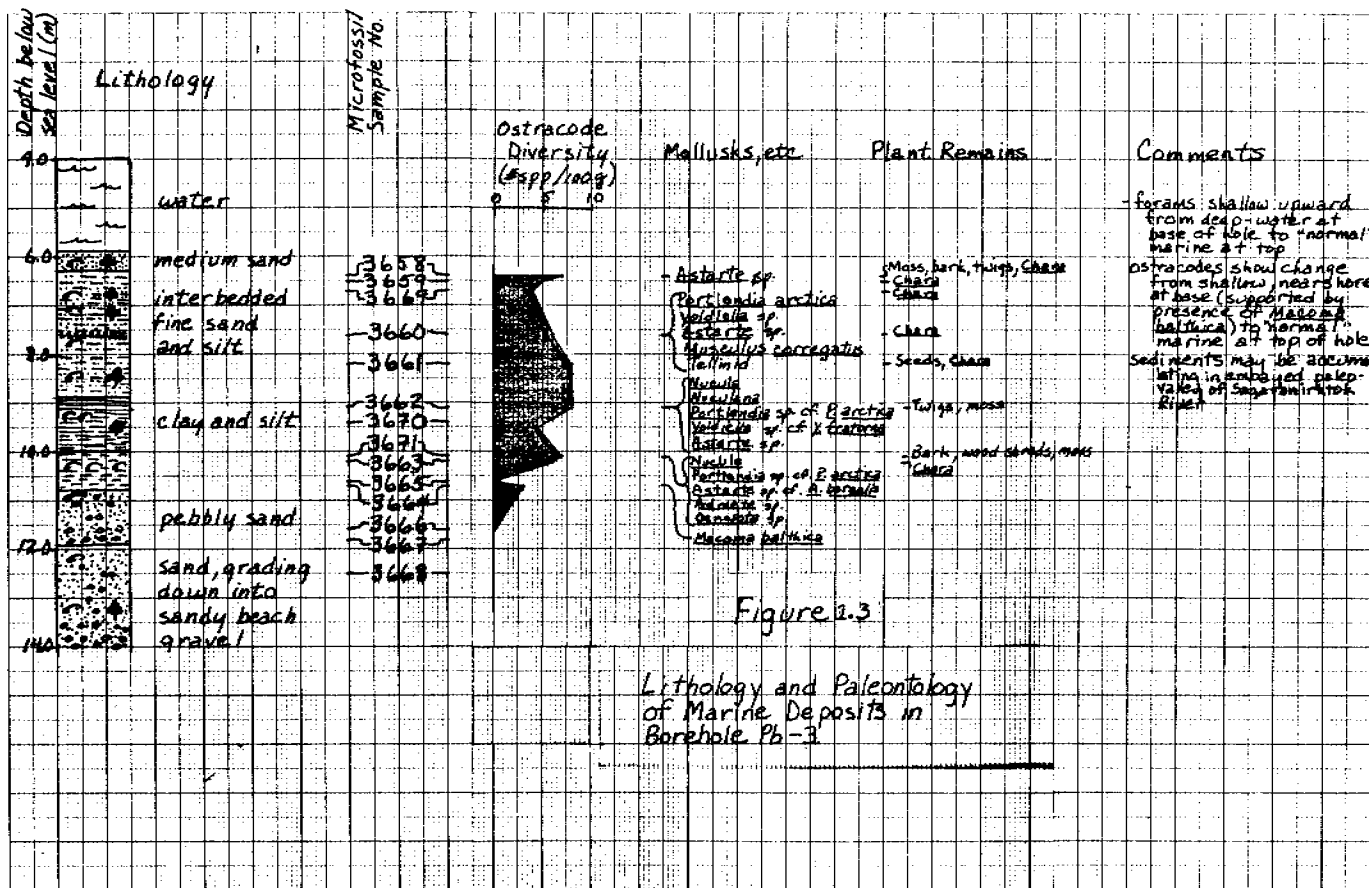 Depth below
sea level (m)
Lithology
Microfossil
Sample No.
Ostracode
Diversity
(#spp/100g)
0 5 10
Mollusks, etc
Plant Remains
Comments
water
medium sand
interbedded
fine sand
and silt
clay and silt
pebbly sand
sand, grading
down into
sandy beach
gravel
6.0
8.0
10.0
12.0
14.0
3658
3659
3669
3660
3661
3662
3670
3671
3663
3665
3664
3666
3667
3668
Astarte sp.
Portlandia arctica
Yoldiella sp.
Astarte sp.
Musculus corregatus
Tellinid
Nucula
Nuculana
Portlandia sp. cf. P. arctica
Yoldiella sp. cf. Y. fraterna
Astarte sp.
Nucula
Portlandia sp. cf. P. arctica
Astarte sp. cf. A. borealis
Admete sp.
sp.
Macoma balthica
Moss, bark, twigs, Chara
Chara
Chara
Chara
Seeds, Chara
Twigs, moss
Bark, wood shreds, moss
Chara
- forams shallow upward
from deep-water at
base of hole to "normal"
marine at top
ostracodes show change
from shallow, nearshore
at base (supported by
presence of Macoma
balthica) to "normal"
marine at top of hole
Sediments may be accumu-
lating in embayed paleo-
valley of Sagavanirktok
River
Figure 1.3
Lithology and Paleontology
of Marine Deposits in
Borehole Pb-3